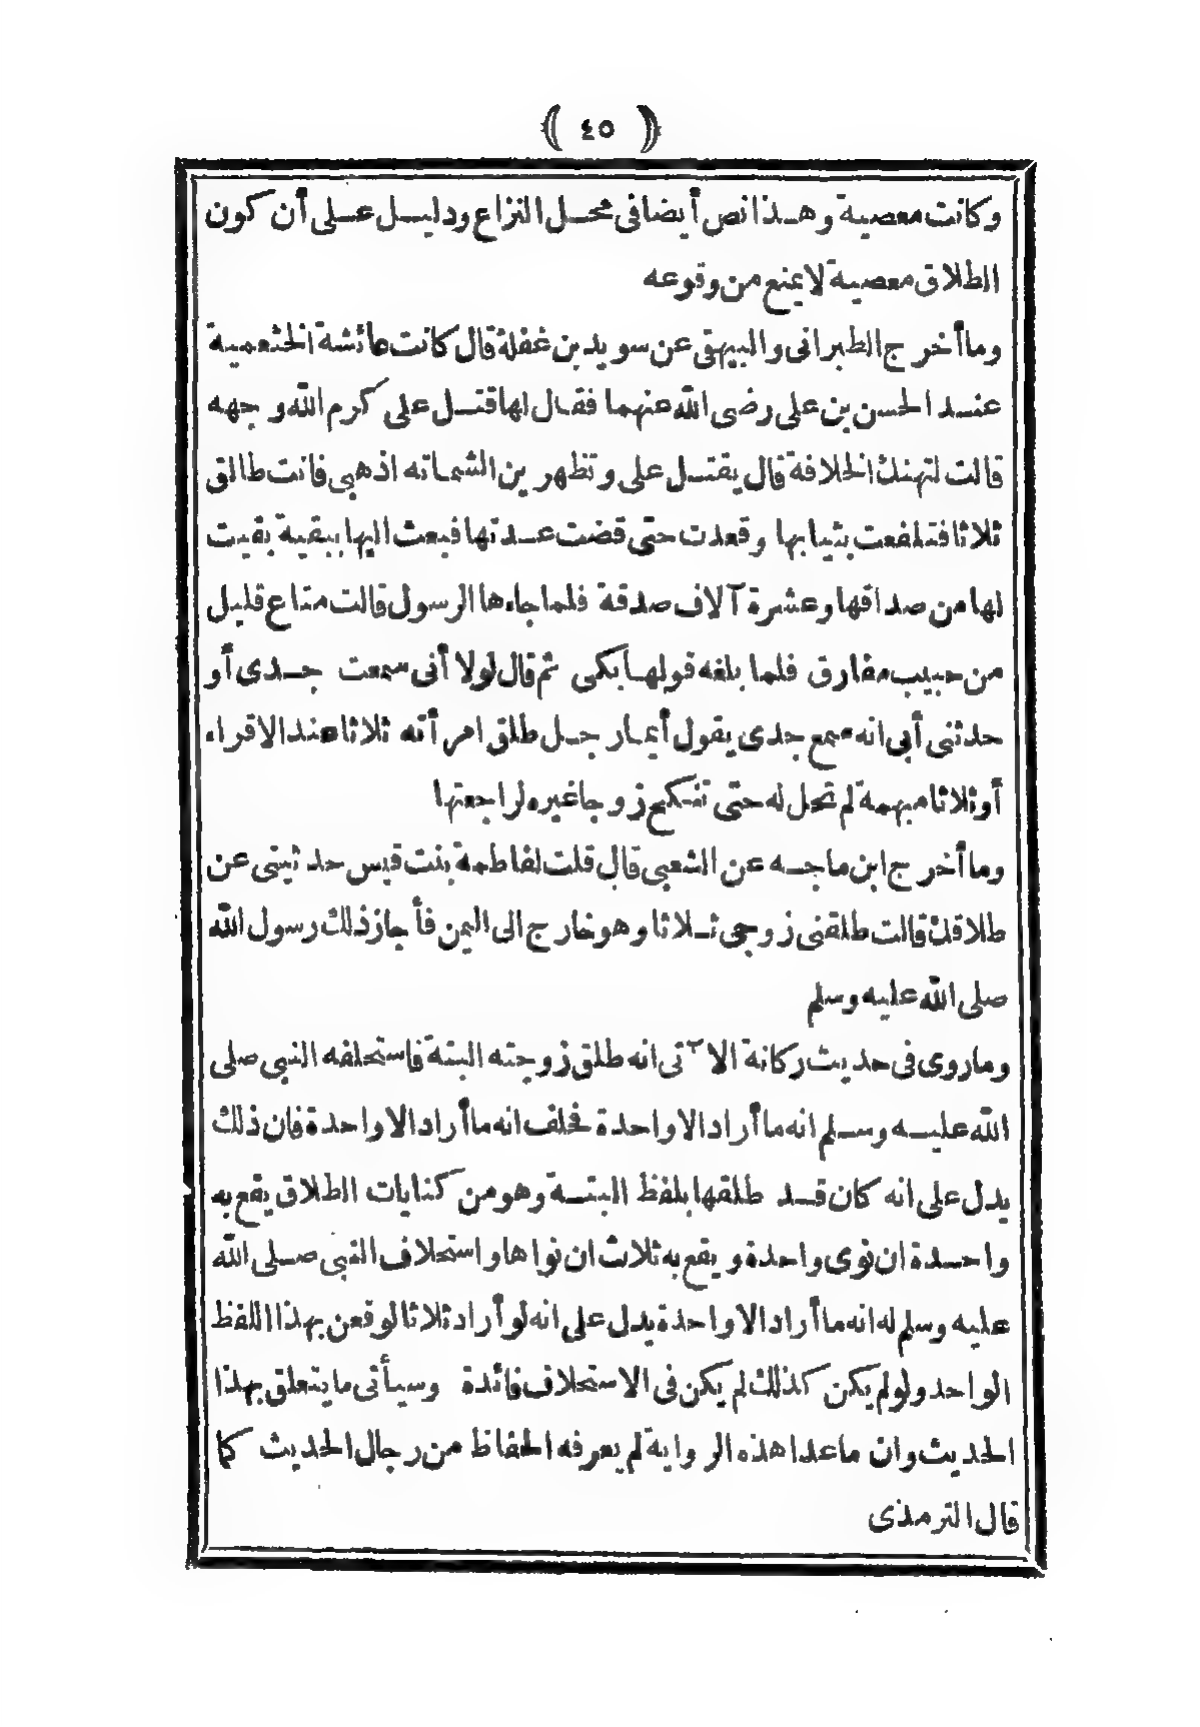 ﴿ ٤٥ ﴾
وكانت معصية وهذا نص أيضا فى محل النزاع ودليل على أن كون
الطلاق معصية لا يمنع من وقوعه
وما أخرج الطبرانى والبيهقى عن سويد بن غفلة قال كانت عائشة الخثعمية
عند الحسن بن على رضى الله عنهما فقال لها قتل على كرم الله وجهه
قالت لتهنك الخلافة قال يقتل على وتظهرين الشماتة اذهبى فانت طالق
ثلاثا فتلفعت بثيابها وقعدت حتى قضت عدتها فبعث اليها ببقية بقيت
لها من صداقها وعشرة آلاف صدقة فلما جاءها الرسول قالت متاع قليل
من حبيب مفارق فلما بلغه قولها بكى ثم قال لولا أنى سمعت جدى أو
حدثنى أبى انه سمع جدى يقول أيما رجل طلق امرأته ثلاثا عند الاقراء
أو ثلاثا مبهمة لم تحل له حتى تنكح زوجا غيره لراجعتها
وما أخرج ابن ماجه عن الشعبى قال قلت لفاطمة بنت قيس حدثينى عن
طلاقك قالت طلقنى زوجى ثلاثا وهو خارج الى اليمن فأجاز ذلك رسول الله
صلى الله عليه وسلم
وما روى فى حديث ركانة الآتى انه طلق زوجته البتة فاستحلفه النبى صلى
الله عليه وسلم انه ما أراد الا واحدة فحلف انه ما أراد الا واحدة فان ذلك
يدل على انه كان قد طلقها بلفظ البتة وهو من كنايات الطلاق يقع به
واحدة ان نوى واحدة ويقع به ثلاث ان نواها واستحلاف النبى صلى الله
عليه وسلم له انه ما أراد الا واحدة يدل على انه لو أراد ثلاثا لوقعن بهذا اللفظ
الواحد ولو لم يكن كذلك لم يكن فى الاستحلاف فائدة وسيأتى ما يتعلق بهذا
الحديث وان ما عدا هذه الرواية لم يعرفه الحفاظ من رجال الحديث كما
قال الترمذى